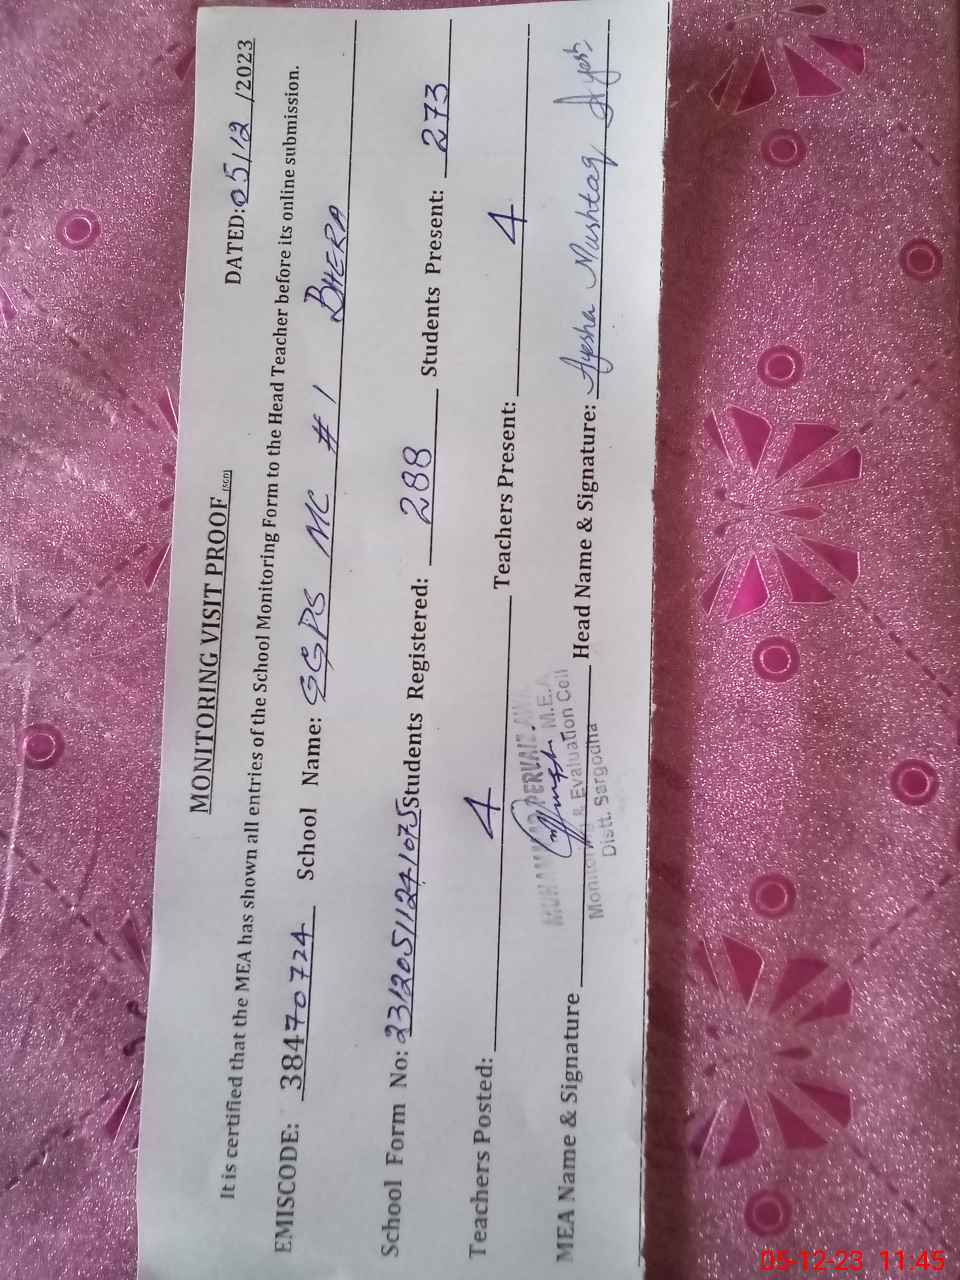 MONITORING VISIT PROOF (SGD)
DATED: 05/12/2023
It is certified that the MEA has shown all entries of the School Monitoring Form to the Head Teacher before its online submission.
EMISCODE: 38470724 School Name: GGPS MC # 1 BHERA
School Form No: 23120511241075 Students Registered: 288 Students Present: 273
Teachers Posted: 4 Teachers Present: 4
MEA Name & Signature Head Name & Signature: Ayesha Mushtaq Ayesh
PERVAIZ
M.E.A
& Evaluation Cell
Distt. Sargodha
05-12-23 11:45